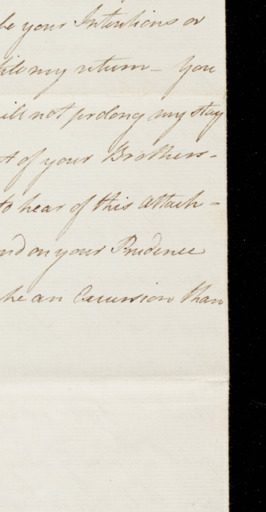 be your Intentions or
my return - You
ill not prolong my stay
of your Brothers -
to hear of this attach -
nd on your Prudence
he an Excursion than